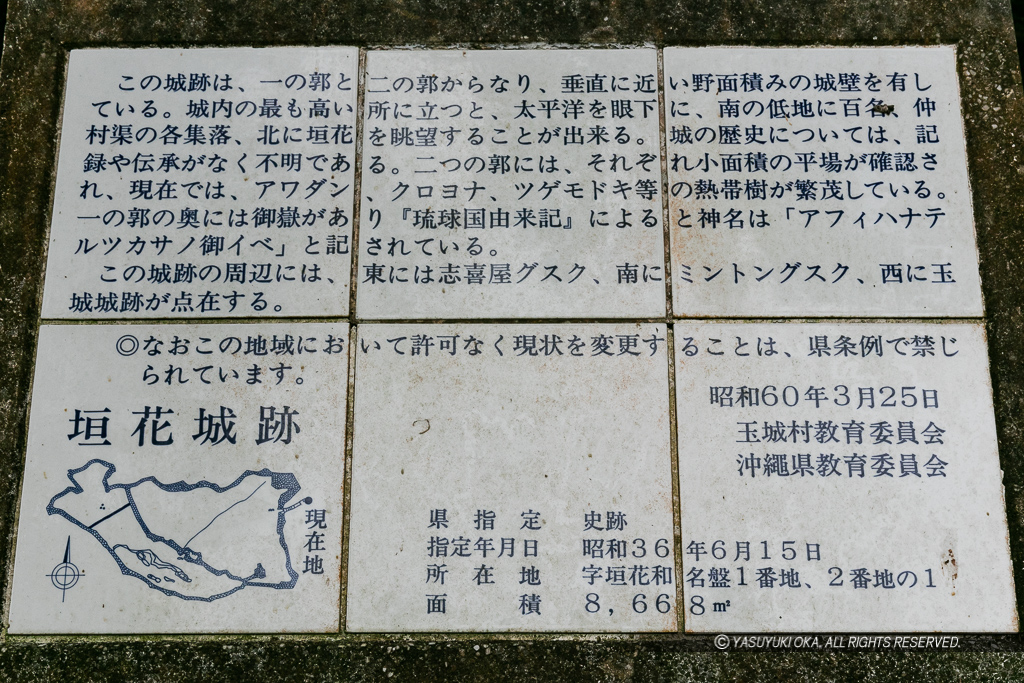 この城跡は、一の郭と二の郭からなり、垂直に近い野面積みの城壁を有し
ている。城内の最も高い所に立つと、太平洋を眼下に、南の低地に百名、仲
村渠の各集落、北に垣花を眺望することが出来る。城の歴史については、記
録や伝承がなく不明である。二つの郭には、それぞれ小面積の平場が確認さ
れ、現在では、アワダン、クロヨナ、ツゲモドキ等の熱帯樹が繁茂している。
一の郭の奥には御嶽があり『琉球国由来記』によると神名は「アフィハナテ
ルツカサノ御イベ」と記されている。
この城跡の周辺には、東には志喜屋グスク、南にミントングスク、西に玉
城城跡が点在する。
◎なおこの地域において許可なく現状を変更することは、県条例で禁じ
られています。
昭和60年3月25日
玉城村教育委員会
沖縄県教育委員会
垣花城跡
現在地
県指定 史跡
指定年月日 昭和36年6月15日
所在地 字垣花和名盤1番地、2番地の1
面積 8,668㎡
© YASUYUKI OKA, ALL RIGHTS RESERVED.